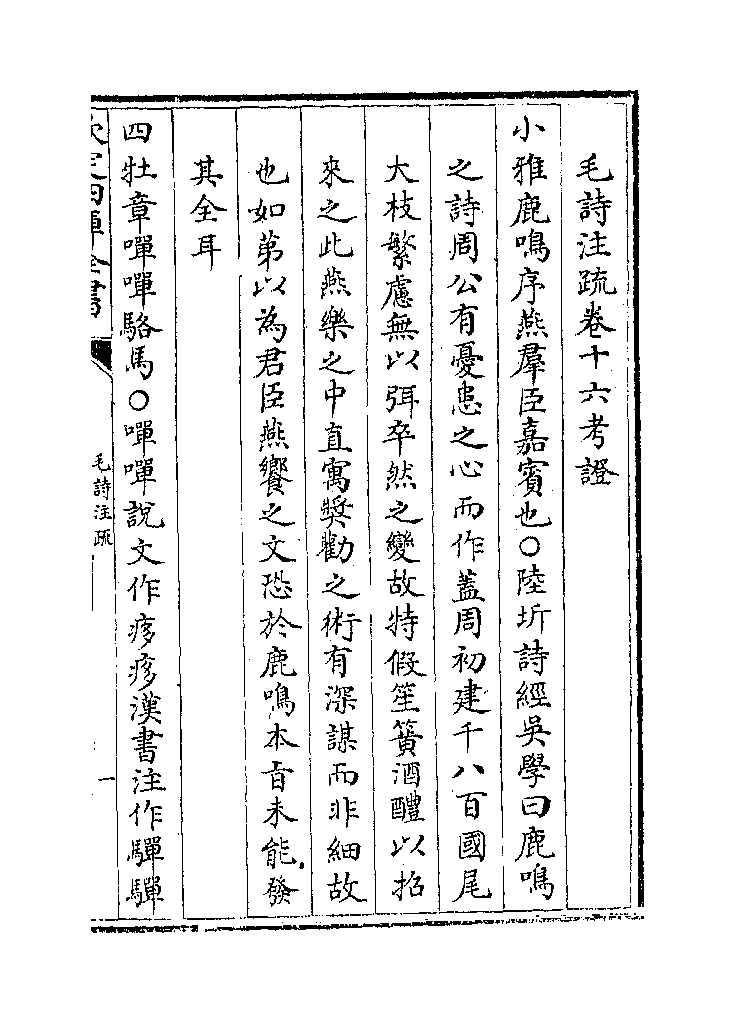 毛詩注疏卷十六考證
小雅鹿鳴序燕羣臣嘉賓也○陸圻詩經吳學曰鹿鳴
之詩周公有憂患之心而作蓋周初建千八百國尾
大枝繁慮無以弭卒然之變故特假笙簧酒醴以招
來之此燕樂之中直寓奬勸之術有深謀而非細故
也如第以為君臣燕饗之文恐於鹿鳴本旨未能發
其全耳
四牡章嘽嘽駱馬○嘽嘽說文作痑痑漢書注作驒驒
欽定四庫全書
毛詩注疏
一